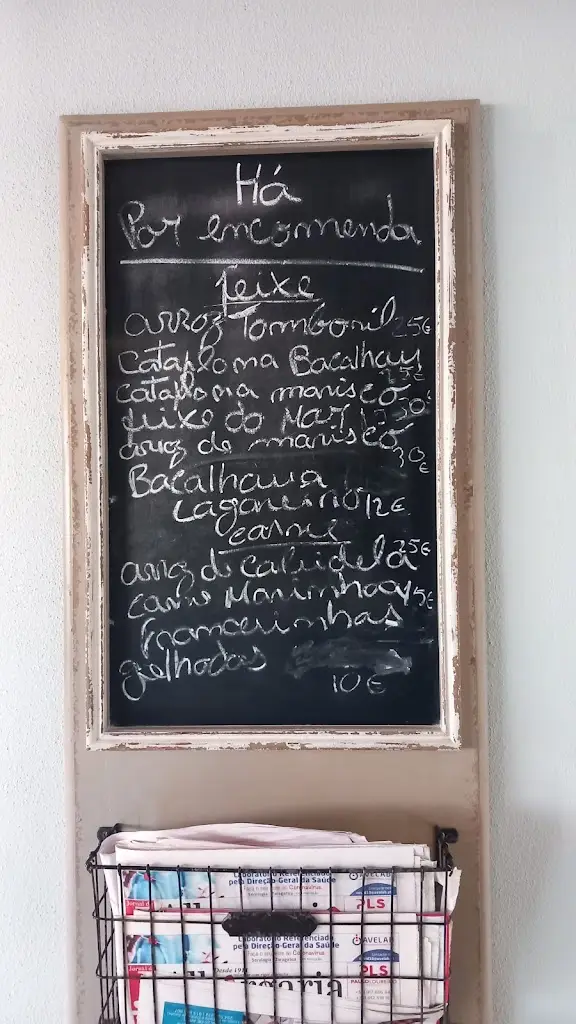 Há
Por encomenda
Peixe
arroz Tomboril 25€
cataplana Bacalhau
25€
cataplana marisco
Peixe do Mar 30€
arroz de marisco
30€
Bacalhau a
Lagareiro 12€
carne
25€
arroz de cabidela
carne Marinhoa 15€
francesinhas
grelhadas
10€
Laboratório Referenciado
pela Direção-Geral da Saúde
AVELAB
PLS
Jornal
Laboratório Referenciado
pela Direção-Geral da Saúde
AVELAB
PLS
Jornal
Desde